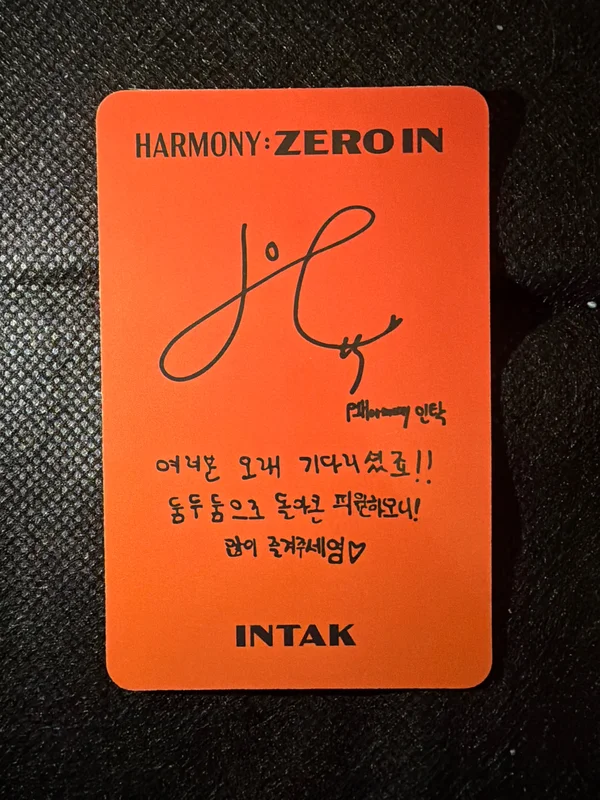 HARMONY: ZERO IN
P1Harmony 인탁
여러분 오래 기다리셨죠!!
둠두둠으로 돌아온 피원하모니!
많이 즐겨주세염♡
INTAK